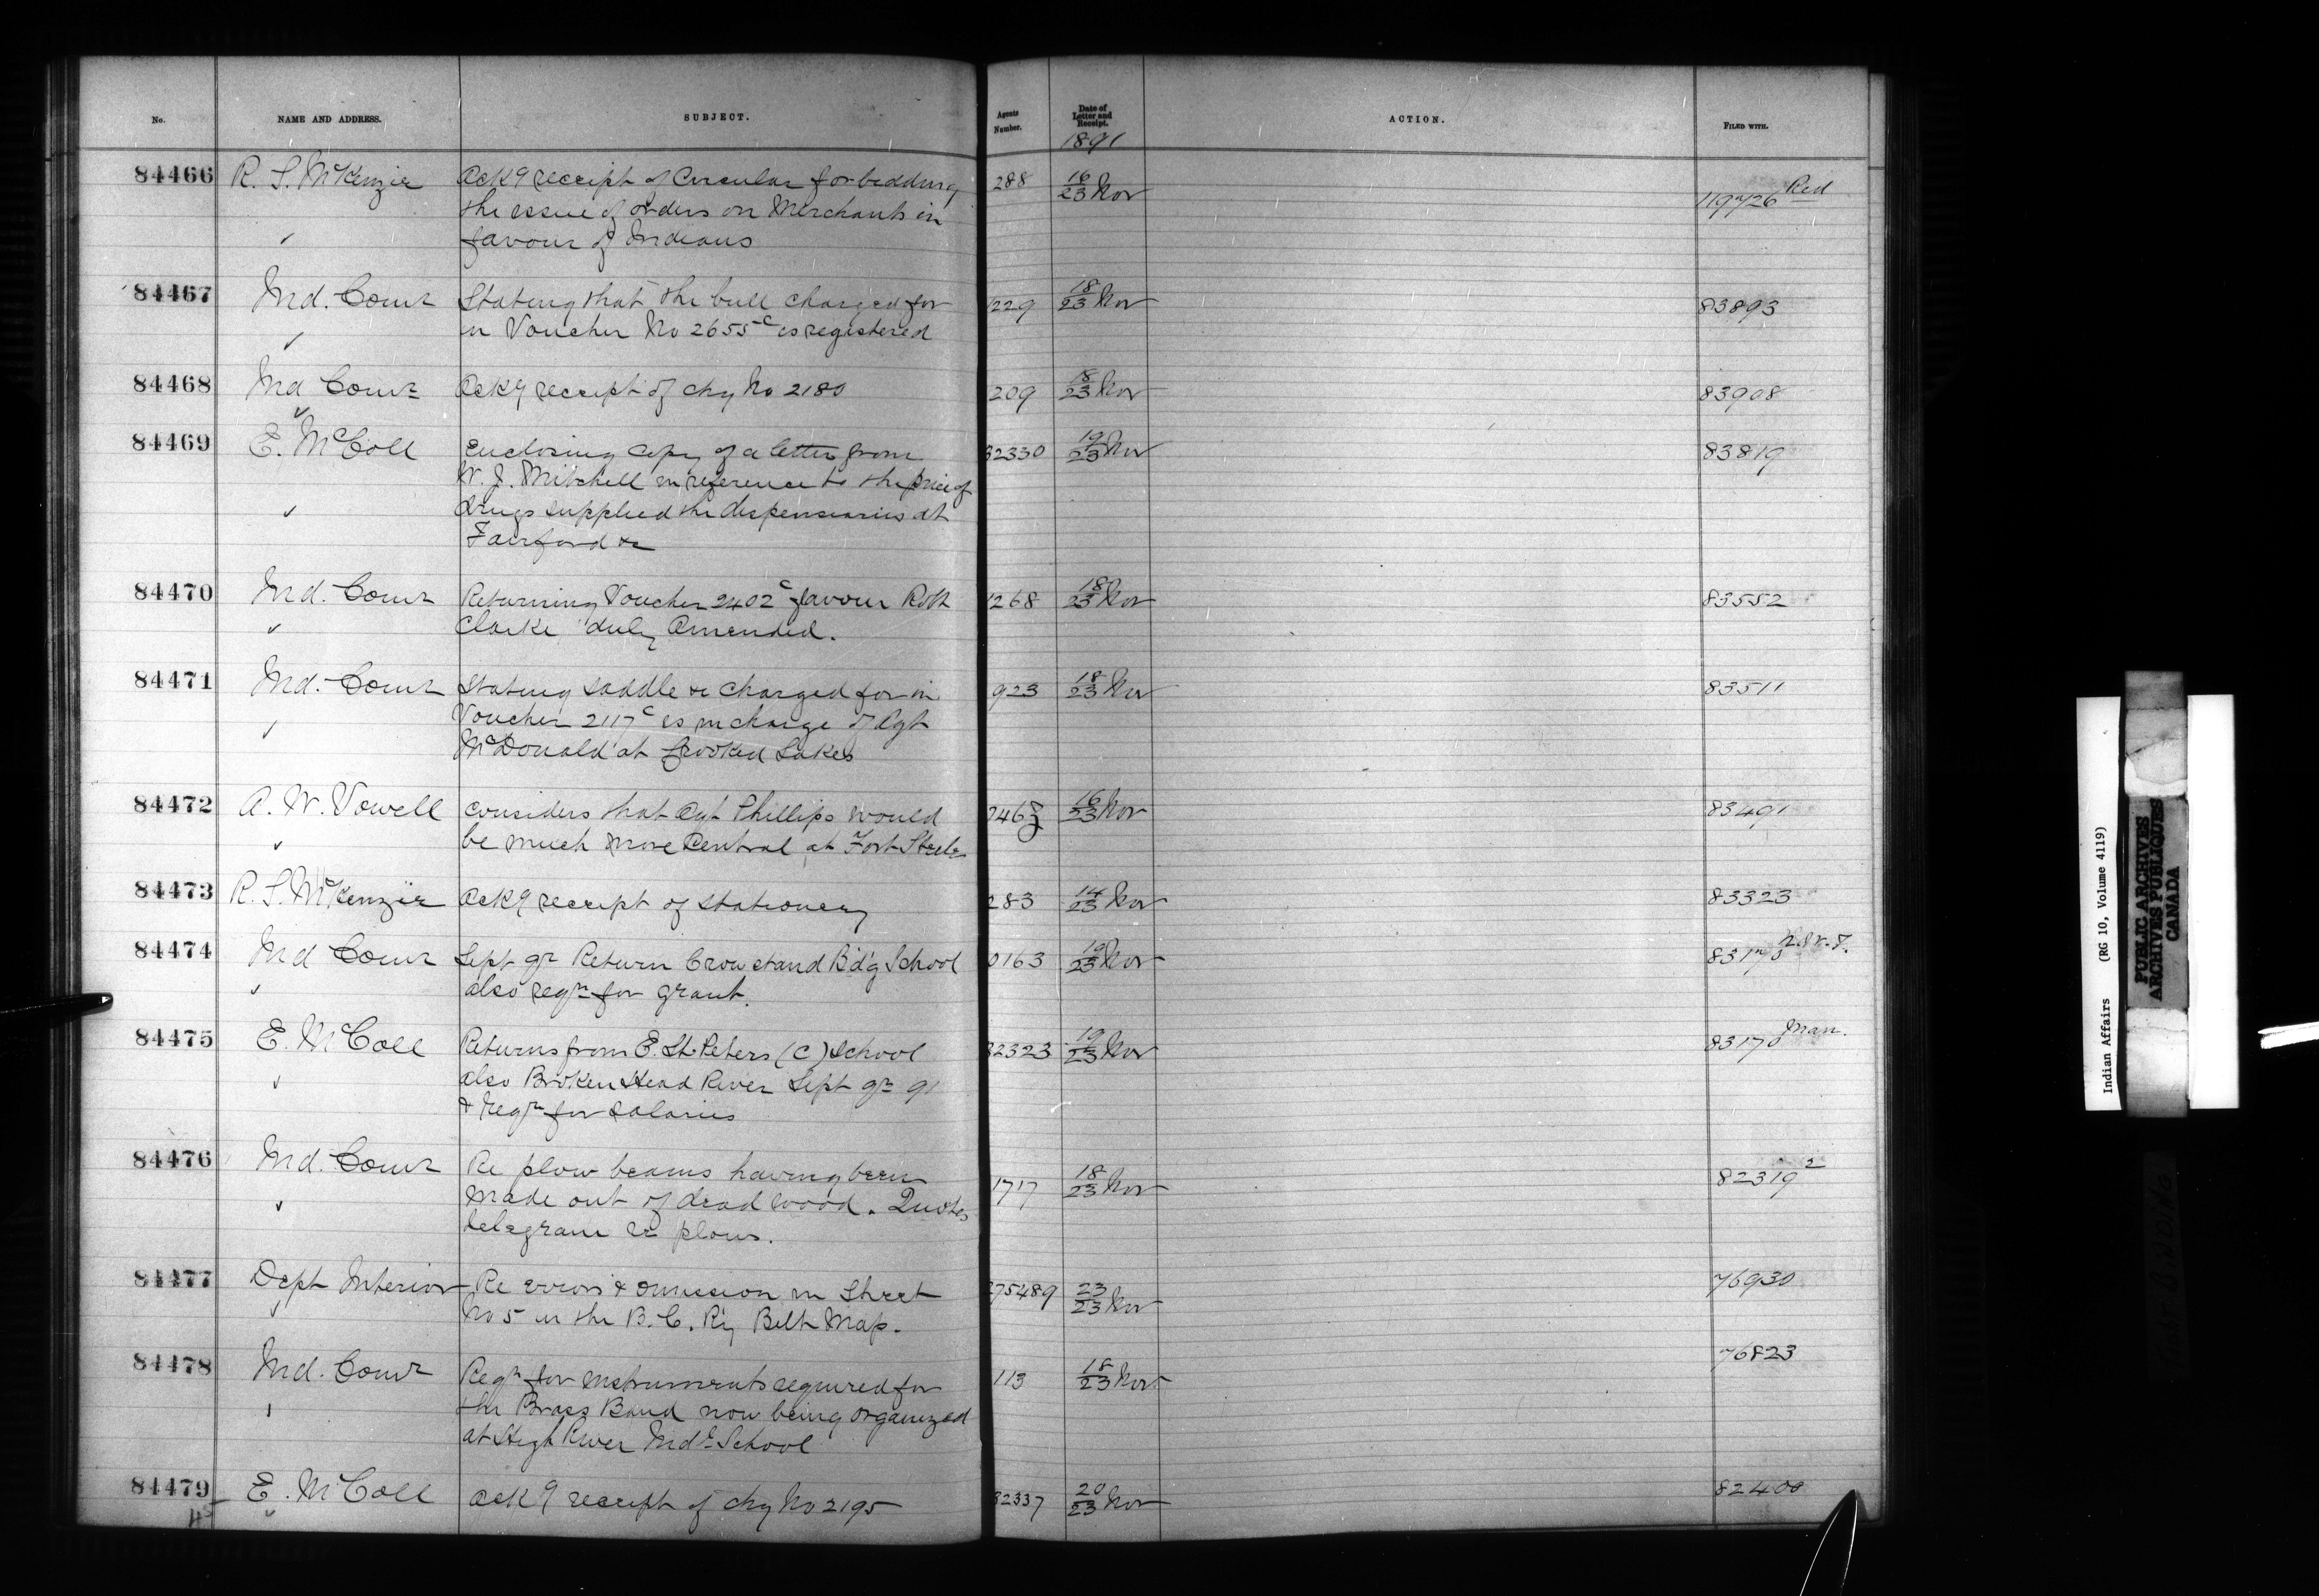 No. NAME AND ADDRESS. SUBJECT. Agents Number. Date of Letter and Receipt. ACTION. FILED WITH.
1891
84466 R. S. McKenzie Ackg receipt of Circular forbedding 288 16/23 Nov 119726 Red
the issue of orders on Merchants in
favour of Indians
84467 Ind. Comr Stating that the bull charged for 229 18/23 Nov 83893
in Voucher No 2655 c is registered
84468 Ind Comr Ackg receipt of chq No 2180 209 18/23 Nov 83908
84469 E. McColl Enclosing copy of a letter from 32330 19/23 Nov 83819
W. J. Mitchell in reference to the price of
drugs supplied the dispensaries at
Fairford &c
84470 Ind. Comr Returning Voucher 2402 c favour Robt 1268 18/23 Nov 83552
Clarke duly Amended.
84471 Ind. Comr Stating saddle &c charged for in 923 18/23 Nov 83511
Voucher 2117 c is in charge of Agt
McDonald at Crooked Lakes
84472 A. W. Vowell Considers that Agt Phillips would 16/23 Nov 83491
be much more Central at Fort Steele
84473 R. S. McKenzie Ackg receipt of stationery 283 14/23 Nov 83323
84474 Ind Comr Sept qr Return Crowstand Bd'g School 0163 19/23 Nov 83170
also reqn for grant.
84475 E. McColl Returns from E. St. Peters (C) School 32323 19/23 Nov 83170 Man.
also Broken Head River Sept qr 91
& reqn for salaries
84476 Ind. Comr Re plow beams having been 1717 18/23 Nov 82319 2
made out of dead wood. Quotes
telegram re plows.
84477 Dept Interior Re errors & omission in Sheet 275489 23/23 Nov 76930
No 5 in the B. C. Ry Belt Map.
84478 Ind. Comr Reqn for instruments required for 113 18/23 Nov 76823
the Brass Band now being organized
at High River Indl School
84479 E. McColl Ackg receipt of chq No 2195 32337 20/23 Nov 82400
45
Indian Affairs (RG 10, Volume 4119)
PUBLIC ARCHIVES
ARCHIVES PUBLIQUES
CANADA